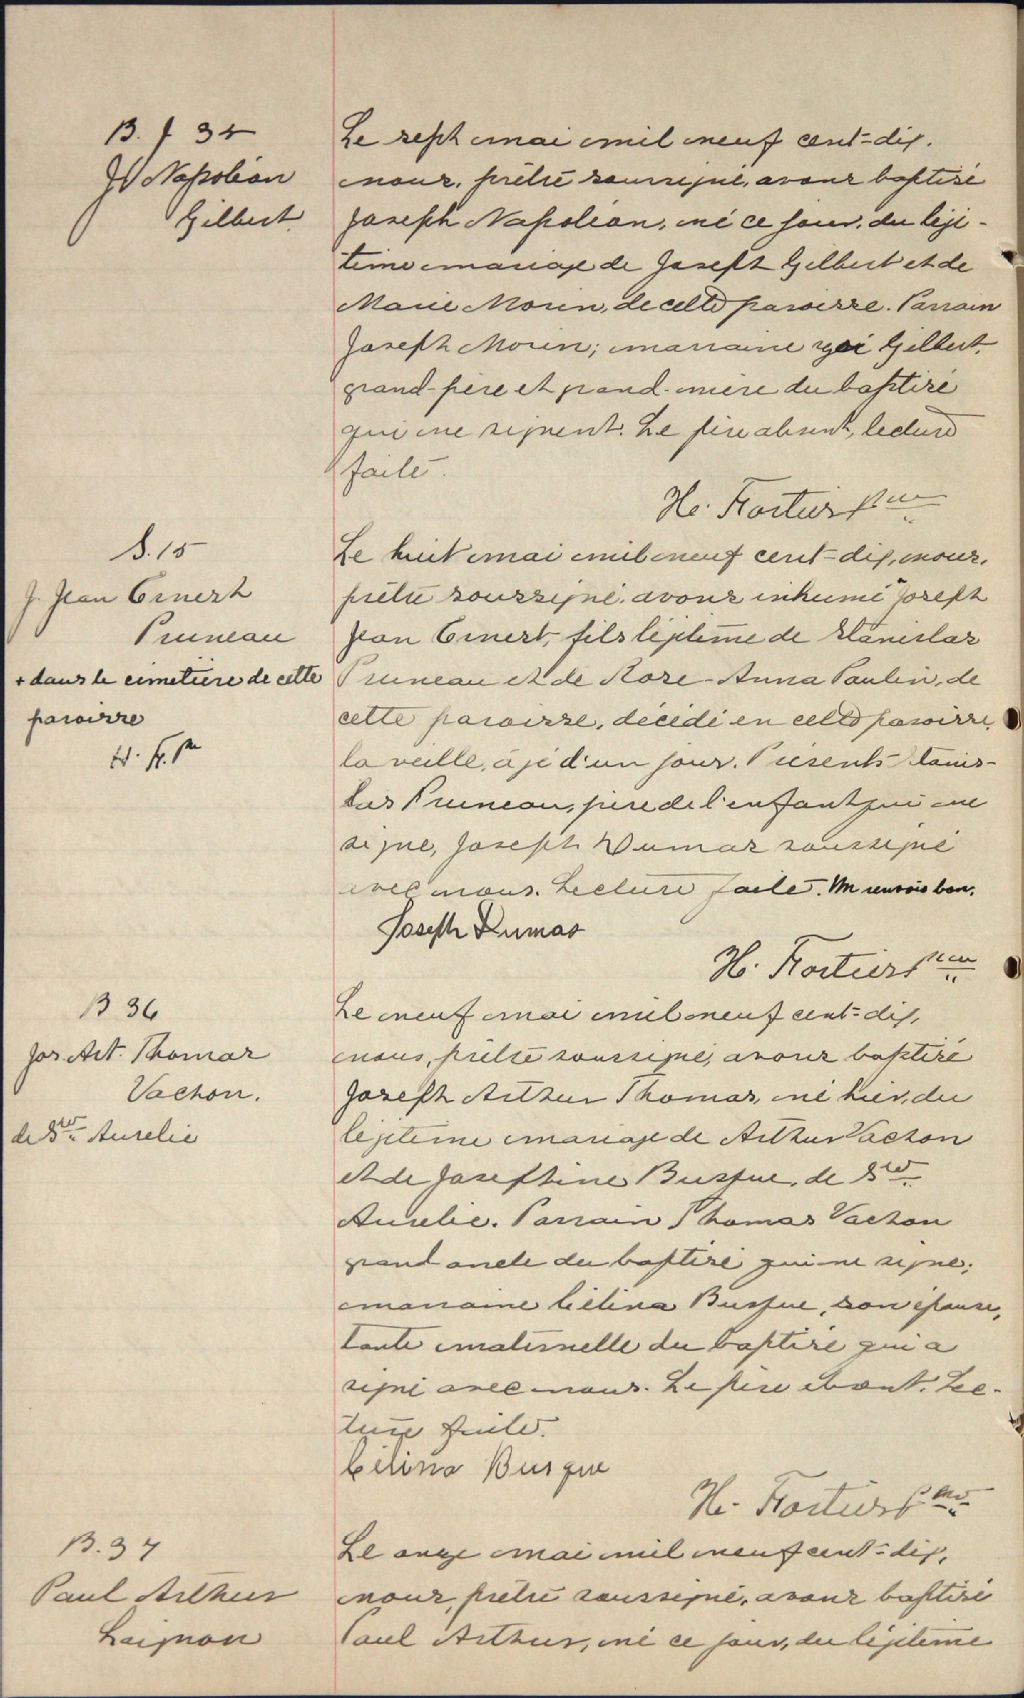 B. 35
J. Napoléon
Gilbert.
Le sept mai mil neuf cent-dix,
nous, prêtre soussigné, avons baptisé
Joseph Napoléon, né ce jour, du légi-
time mariage de Joseph Gilbert et de
Marie Morin, de cette paroisse. Parrain
Joseph Morin; marraine Gilbert,
grand-père et grand-mère du baptisé
qui ne signent. Le père absent, lecture
faite.
H. Fortier ptre
S. 15
J. Jean Ernest
Pruneau
+ dans le cimetière de cette
paroisse
H. F. Ptre
Le huit mai mil neuf cent-dix, nous,
prêtre soussigné, avons inhumé + Joseph
Jean Ernest, fils légitime de Stanislas
Pruneau et de Rose-Anna Paulin, de
cette paroisse, décédé en cette paroisse,
la veille, âgé d'un jour. Présents Stanis-
las Pruneau, père de l'enfant qui ne
signe, Joseph Dumas soussigné
avec nous. Lecture faite. Un renvoi bon.
Joseph Dumas
H. Fortier ptre
B 36
Jos. Art. Thomas
Vachon.
de Ste Aurelie
Le neuf mai mil neuf cent-dix,
nous, prêtre soussigné, avons baptisé
Joseph Arthur Thomas, né hier, du
légitime mariage de Arthur Vachon
et de Josephine Busque, de Ste
Aurelie. Parrain Thomas Vachon
grand oncle du baptisé qui ne signe;
marraine Célina Busque, son épouse,
tante maternelle du baptisé qui a
signé avec nous. Le père absent. Lec-
ture faite.
Célina Busque
H. Fortier ptre
B. 37
Paul Arthur
Loignon
Le onze mai mil neuf cent-dix,
nous, prêtre soussigné, avons baptisé
Paul Arthur, né ce jour, du légitime